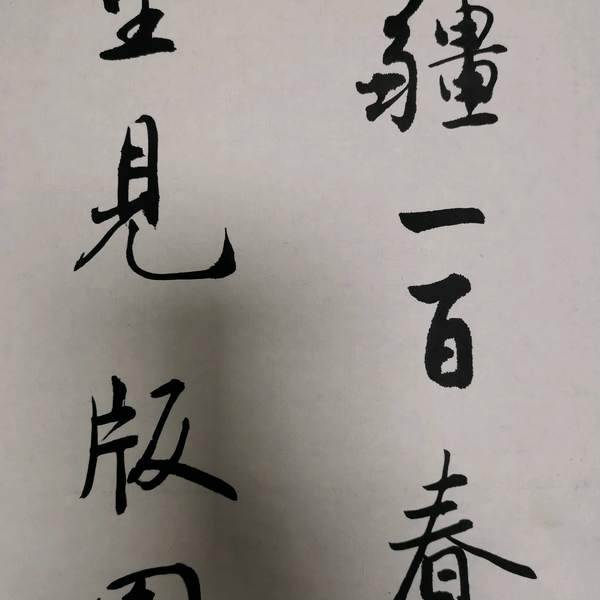 疆一百春
見版